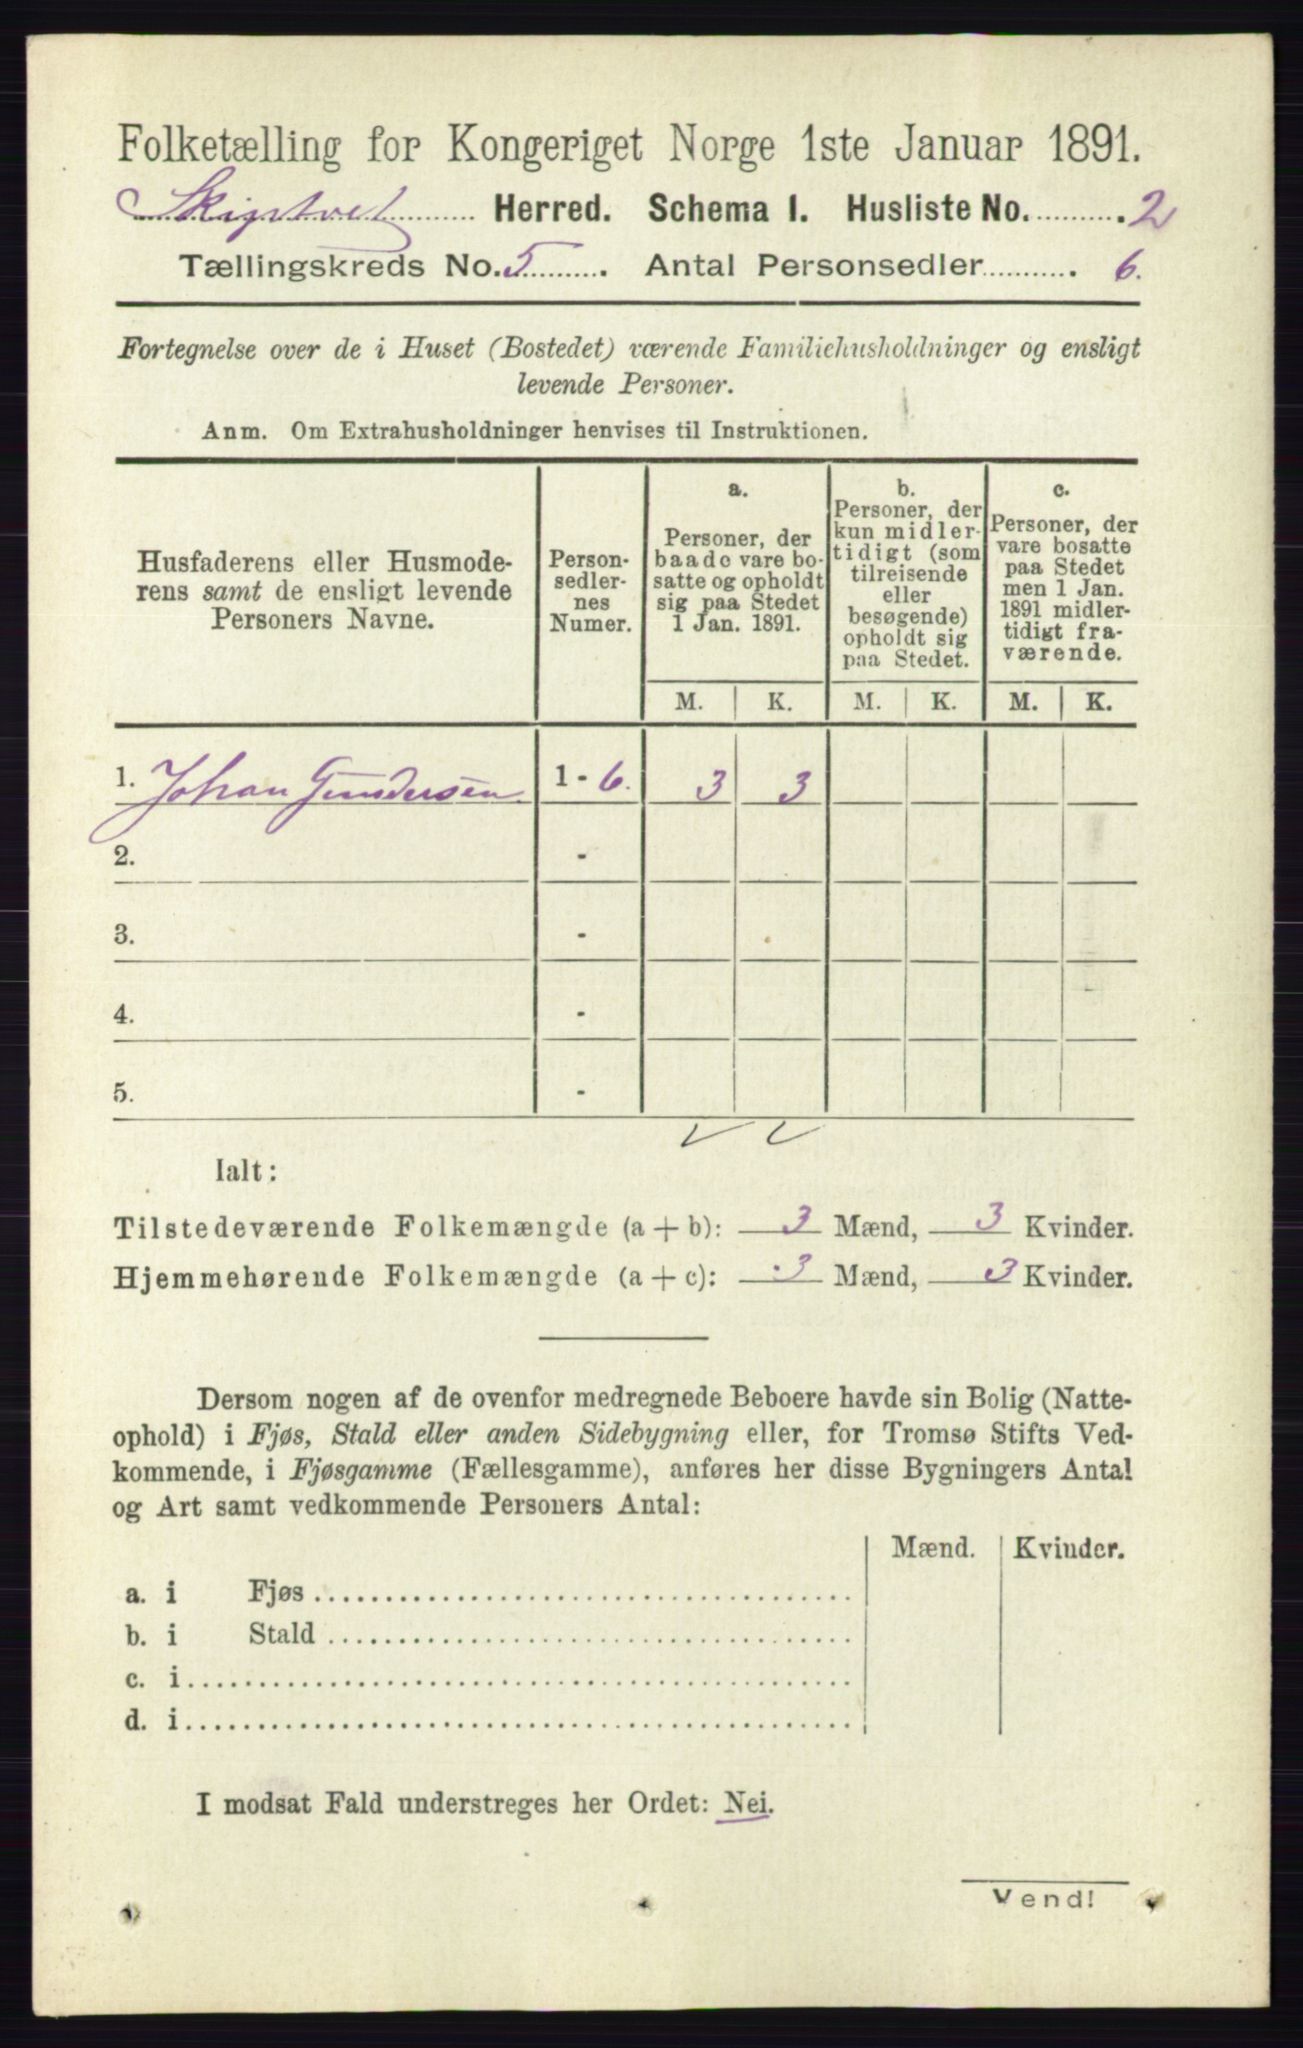 Folketælling for Kongeriget Norge 1ste Januar 1891.
Skiptvet Herred. Schema I. Husliste No. 2
Tællingskreds No. 5. Antal Personsedler 6.
Fortegnelse over de i Huset (Bostedet) værende Familiehusholdninger og ensligt
levende Personer.
Anm. Om Extrahusholdninger henvises til Instruktionen.
Husfaderens eller Husmode-
rens samt de ensligt levende
Personers Navne.
Person-
sedler-
nes
Numer.
a.
Personer, der
baade vare bo-
satte og opholdt
sig paa Stedet
1 Jan. 1891.
b.
Personer, der
kun midler-
tidigt (som
tilreisende
eller
besøgende)
opholdt sig
paa Stedet.
c.
Personer, der
vare bosatte
paa Stedet
men 1 Jan.
1891 midler-
tidigt fra-
værende.
M. K. M. K. M. K.
1. Johan Gundersen 1 - 6. 3 3
2. -
3. -
4. -
5. -
Ialt:
Tilstedeværende Folkemængde (a + b): 3 Mænd, 3 Kvinder.
Hjemmehørende Folkemængde (a + c): 3 Mænd, 3 Kvinder.
Dersom nogen af de ovenfor medregnede Beboere havde sin Bolig (Natte-
ophold) i Fjøs, Stald eller anden Sidebygning eller, for Tromsø Stifts Ved-
kommende, i Fjøsgamme (Fællesgamme), anføres her disse Bygningers Antal
og Art samt vedkommende Personers Antal:
Mænd. Kvinder.
a. i Fjøs
b. i Stald
c. i
d. i
I modsat Fald understreges her Ordet: Nei.
Vend!